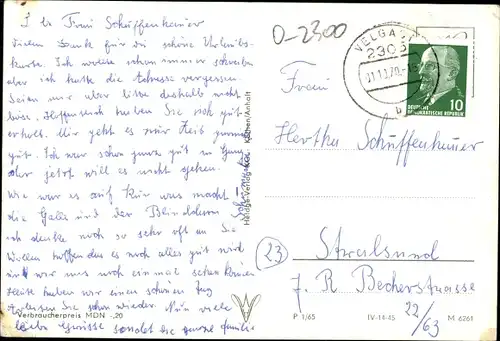 Frau Schüffenhauer
Vielen Dank für die schöne Urlaubs-
karte. Ich wollte schon immer schreiben
aber ich hatte die Adresse vergessen.
Seien nur aber bitte deshalb nicht
böse. Hoffentlich haben Sie sich gut
erholt. Mir geht es zur Zeit
gut. Ich war schon ganz gut in
aber jetzt will es nicht gehen.
Wie war es auf Kur was macht
die Galle und der Blinddarm
ich denke noch so sehr oft an Sie
Wollen hoffen das es noch alles gut wird
und wir uns noch einmal sehen können
Heute haben wir einen schönen Tag
Sie schon wieder. Nun viele
liebe Grüsse sendet die ganze Familie
Verbraucherpreis MDN -,20
Heldge-Verlag KG. Köthen/Anhalt
D-2300
VELGAST
2305
01.11.70.-16
b
DEUTSCHE
DEMOKRATISCHE REPUBLIK
10
Frau
Hertha Schüffenhauer
23
Stralsund
J. R. Becherstrasse
22/63
P 1/65 IV-14-45 M 6261